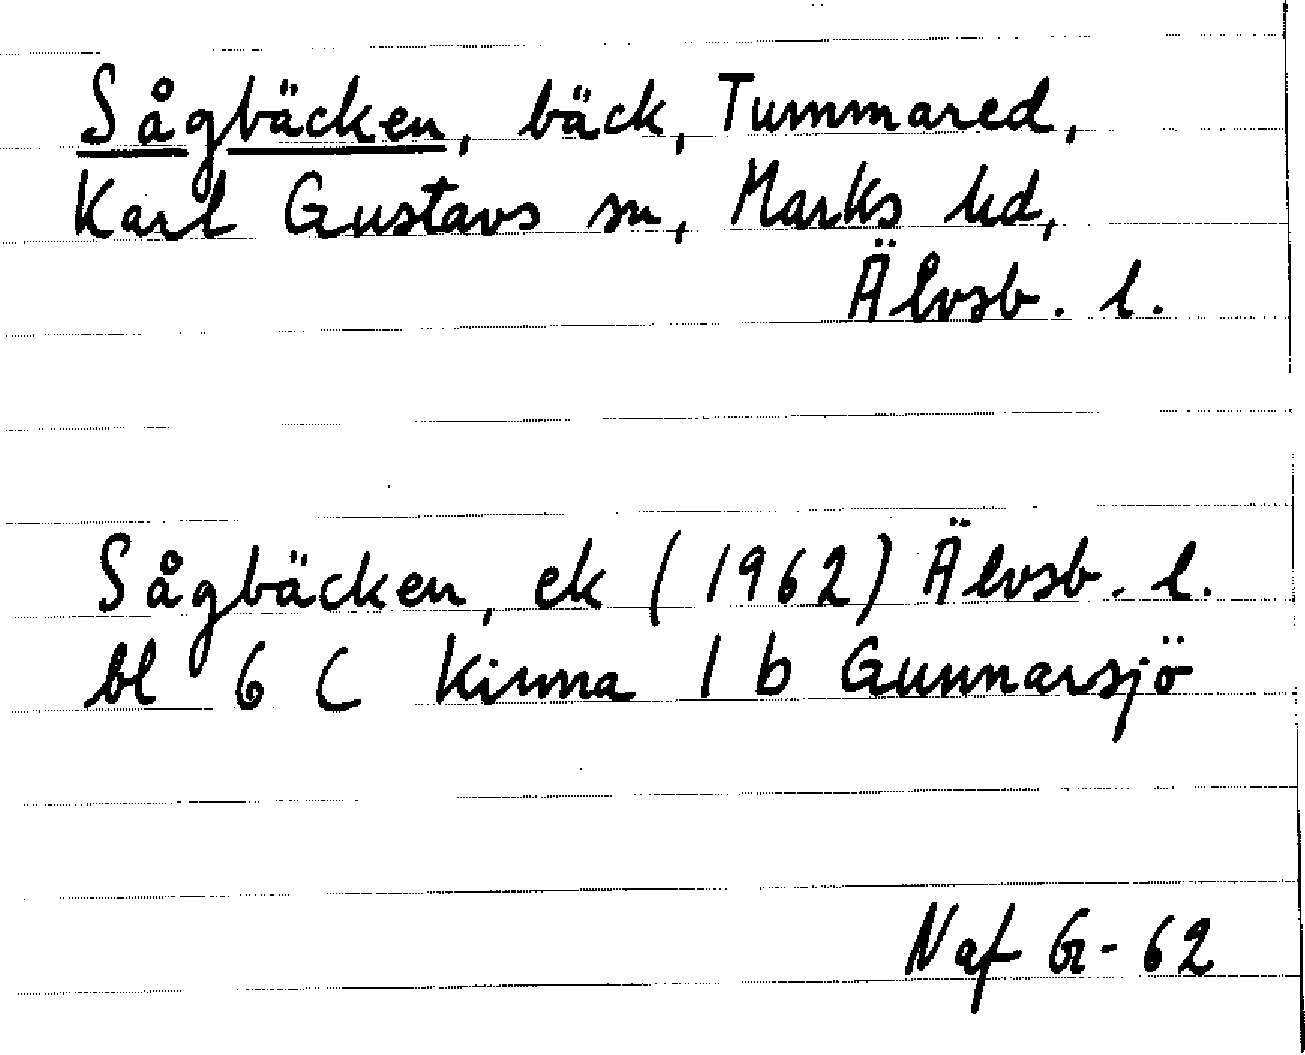 Sågbäcken, bäck, Tummared,
Karl Gustavs sn, Marks hd,
Älvsb. l.
Sågbäcken, ek (1962) Älvsb. l.
bl 6 C Kinna 1 b Gunnarsjö
Naf Gr-62